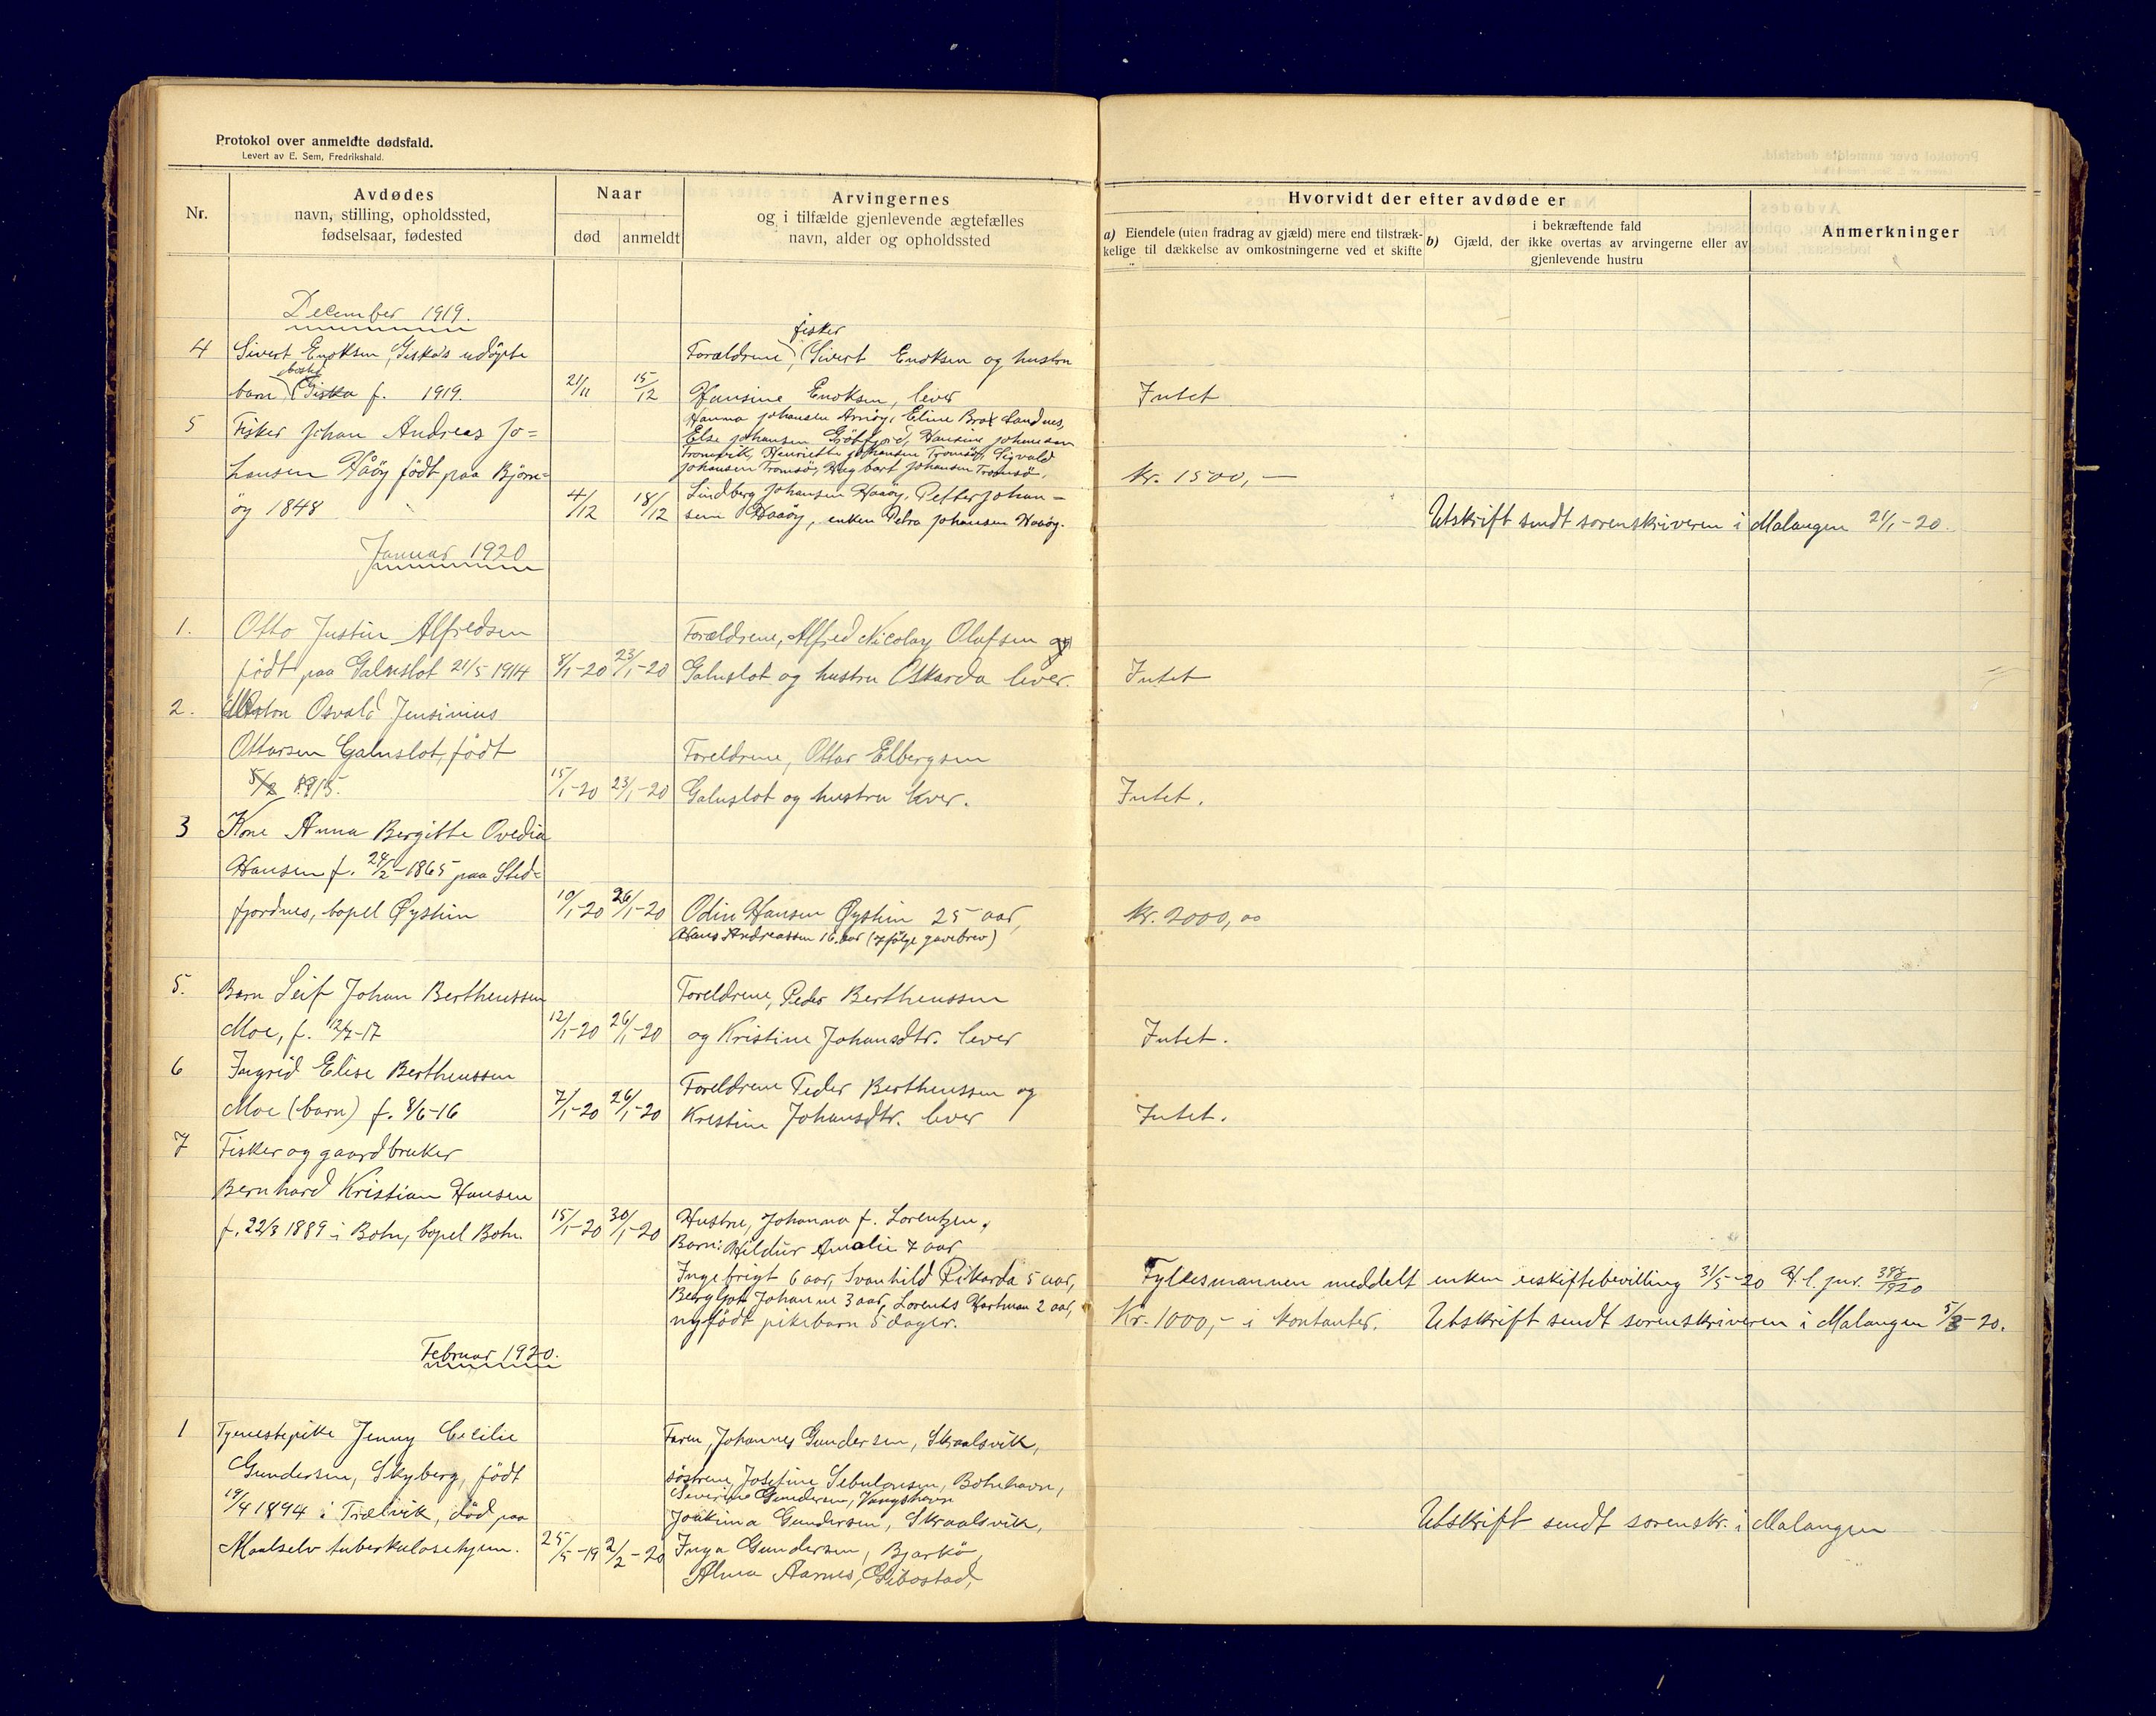 Protokol over anmeldte dødsfald.
Levert av E. Sem, Fredrikshald.
Nr.
Avdødes
navn, stilling, opholdssted,
fødselsaar, fødested
Naar
død
anmeldt
Arvingernes
og i tilfælde gjenlevende ægtefælles
navn, alder og opholdssted
Hvorvidt der efter avdøde er
a) Eiendele (uten fradrag av gjæld) mere end tilstræk-
kelige til dækkelse av omkostningerne ved et skifte
i bekræftende fald
b) Gjæld, der ikke overtas av arvingerne eller av
gjenlevende hustru
Anmerkninger
December 1919.
4
Sivert Enoksen, Giska's udöpte
bosted
barn, Giska f. 1919.
21/11
15/12
fisker
Forældrene, Sivert Enoksen og hustru
Hansine Enoksen, lever
Intet
5
Fisker Johan Andreas Jo=
hansen Håöy født paa Björn=
öy 1848
4/12
18/12
Hanna Johansen Arnöy, Eline Brox Sandnes,
Else Johansen Gjöbfjord, Hansine Johansen
Tromvik, Henriette Johansen Tromsö, Sigvald
Johansen Tromsö, Hagbart Johansen Tromsö,
Lindberg Johansen Haaöy, Petter Johan-
sen Haaöy, enken Petra Johansen Haaöy.
Kr. 1500,-
Utskrift sendt sorenskriveren i Malangen 21/1-20.
Januar 1920
1.
Otto Justin Alfredsen
født paa Galnslot 21/5 1914
8/1-20
23/1-20
Forældrene, Alfred Nicolay Olafsen
Galnslot og hustru Oskarda lever.
Intet
2.
Osvald Jensinius
Ottarsen Galnslot, født
15/1-20
23/1-20
Foreldrene, Ottar Elbergsen
Galnslot og hustru lever.
Intet.
3
Kone Anna Bergitte Ovedia
Hansen f. 24/2-1865 paa Sted=
fjordnes, bopel Øystein
10/1-20
26/1-20
Odin Hansen Øystein 25 aar,
Hans Andreassen 16 aar (ifölge gavebrev)
Kr. 2000,00
5.
Barn Leif Johan Bertheussen
Moe, f. 12/7-17
12/1-20
26/1-20
Foreldrene, Peder Bertheussen
og Kristine Johansdtr. lever
Intet.
6
Ingrid Elise Bertheussen
Moe (barn) f. 8/6-16
7/1-20
26/1-20
Foreldrene Peder Bertheussen og
Kristine Johansdtr. lever
Intet.
7
Fisker og gaardbruker
Bernhard Kristian Hansen
f. 22/3 1889 i Botn, bopel Botn.
15/1-20
30/1-20
Hustru, Johanna f. Lorentzen,
Barn: Hildur Amalie 7 aar
Ingebrigt 6 aar, Svanhild Rikarda 5 aar,
Bergljot Johanne 3 aar, Lorents Hartman 2 aar,
nyfödt pikebarn 5 dager.
Fylkesmannen meddelt enken uskiftebevilling 31/5-20 H.l. jnr. 388/1920
Kr. 1000,- i kontanter. Utskrift sendt sorenskriveren i Malangen 5/3-20.
Februar 1920.
1
Tjenestepike Jenny Cecilie
Gundersen, Skyberg, født
19/4 1894 i Trælvik, död paa
Maalselv tuberkulosehjem.
25/5-19
2/2-20
Faren, Johannes Gundersen, Skraalsvik,
söstrene, Josefine Sebulonsen, Botnhavn,
Severine Gundersen, Vangshavn
Joakima Gundersen, Skraalsvik,
Inga Gundersen, Bjarkö
Alma Aarnes, Gibostad,
Utskrift sendt sorenskr. i Malangen